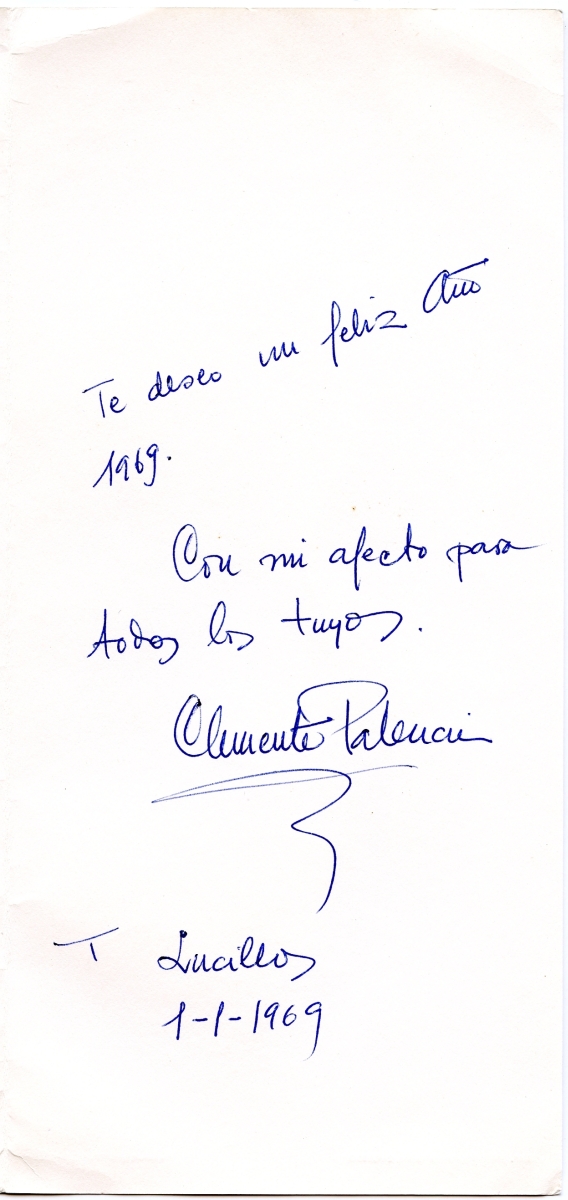 Te deseo un feliz Año
1969.
Con mi afecto para
todos los tuyos.
Clemente Palencia
T Lucillos
1-1-1969